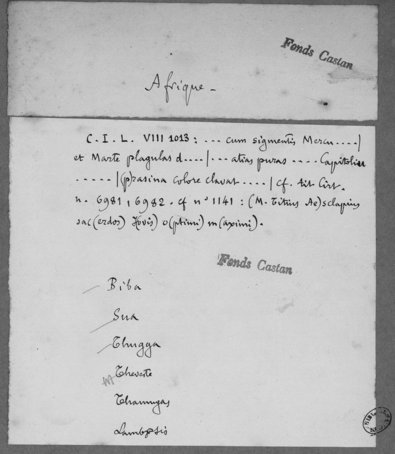 Fonds Castan
Afrique -
C. I. L. VIII 1013 : ... cum sigmentis Mercu....|
et Marte plagulas d....|--- atias puras .... Capitoliu
.....|(p)rasina colore clavat.....| cf. Ait Cirt.
n. 6981, 6982. cf n° 1141 : (M. Titius Ae)sclapius
sac(erdos) Jovis) o(ptimi) m(aximi).
Fonds Castan
Biba
Sua
Thugga
Theveste
Thamugas
Lambæsis